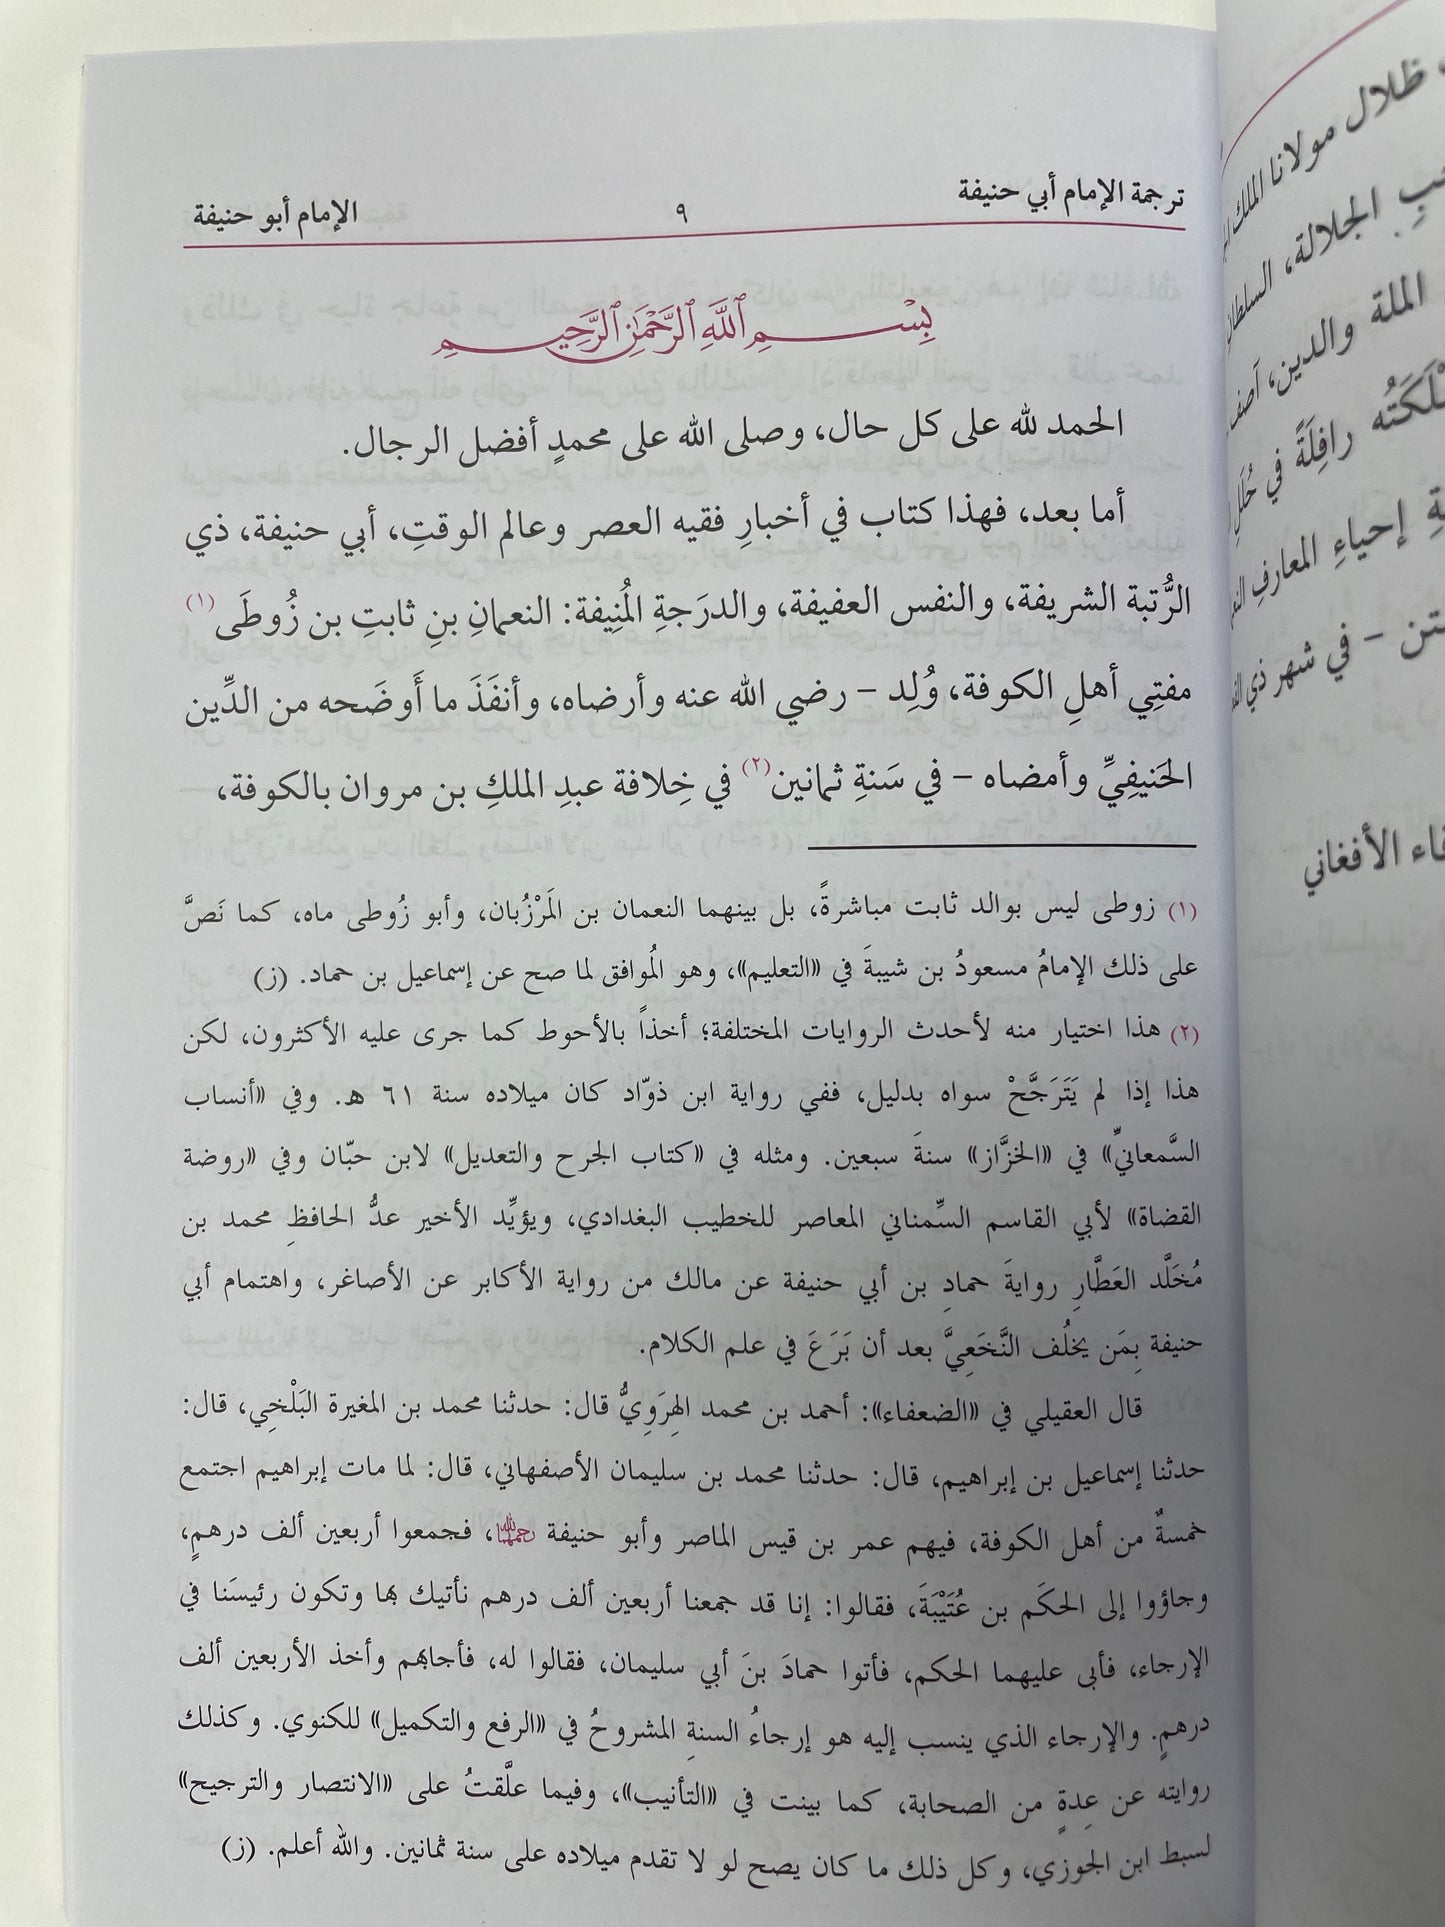 ترجمة الإمام أبي حنيفة
٩
الإمام أبو حنيفة
بِسْمِ ٱللَّهِ ٱلرَّحْمَٰنِ ٱلرَّحِيمِ
الحمد لله على كل حال، وصلى الله على محمدٍ أفضل الرجال.
أما بعد، فهذا كتاب في أخبارِ فقيه العصر وعالم الوقتِ، أبي حنيفة، ذي
الرُّتبة الشريفة، والنفس العفيفة، والدرَجةِ المُنِيفة: النعمانِ بنِ ثابتِ بن زُوطَى (١)
مفتِي أهلِ الكوفة، وُلِد – رضي الله عنه وأرضاه، وأنفَذَ ما أَوضَحه من الدِّين
الحَنيفِيِّ وأمضاه – في سَنةِ ثمانين (٢) في خِلافة عبدِ الملكِ بن مروان بالكوفة،
(١) زوطى ليس بوالد ثابت مباشرةً، بل بينهما النعمان بن المَرْزُبان، وأبو زُوطى ماه، كما نَصَّ
على ذلك الإمامُ مسعودُ بن شيبةَ في «التعليم»، وهو المُوافق لما صح عن إسماعيل بن حماد. (ز)
(٢) هذا اختيار منه لأحدث الروايات المختلفة؛ أخذاً بالأحوط كما جرى عليه الأكثرون، لكن
هذا إذا لم يَتَرَجَّحْ سواه بدليل، ففي رواية ابن ذوّاد كان ميلاده سنة ٦١ هـ. وفي «أنساب
السَّمعانيِّ» في «الخزَّاز» سنةَ سبعين. ومثله في «كتاب الجرح والتعديل» لابن حبّان وفي «روضة
القضاة» لأبي القاسم السِّمناني المعاصر للخطيب البغدادي، ويؤيِّد الأخير عدُّ الحافظِ محمد بن
مُخَلَّد العَطَّارِ روايةَ حمادِ بن أبي حنيفة عن مالك من رواية الأكابر عن الأصاغر، واهتمام أبي
حنيفة بِمَن يخلُف النَّخَعِيَّ بعد أن بَرَعَ في علم الكلام.
قال العقيلي في «الضعفاء»: أحمد بن محمد الهِرَوِيُّ قال: حدثنا محمد بن المغيرة البَلْخِي، قال:
حدثنا إسماعيل بن إبراهيم، قال: حدثنا محمد بن سليمان الأصفهاني، قال: لما مات إبراهيم اجتمع
خمسةٌ من أهل الكوفة، فيهم عمر بن قيس الماصر وأبو حنيفة رحمهما الله، فجمعوا أربعين ألف درهمٍ،
وجاؤوا إلى الحكَم بن عُتَيْبَةَ، فقالوا: إنا قد جمعنا أربعين ألف درهم نأتيك بها وتكون رئيسَنا في
الإرجاء، فأبى عليهما الحكم، فأتوا حمادَ بنَ أبي سليمان، فقالوا له، فأجابهم وأخذ الأربعين ألف
درهمٍ. والإرجاء الذي ينسب إليه هو إرجاءُ السنةِ المشروحُ في «الرفع والتكميل» للكنوي. وكذلك
روايته عن عِدةٍ من الصحابة، كما بينت في «التأنيب»، وفيما علَّقتُ على «الانتصار والترجيح»
لسبط ابن الجوزي، وكل ذلك ما كان يصح لو لا تقدم ميلاده على سنة ثمانين. والله أعلم. (ز)
ظلال مولانا الملك
الجلالة، السلطان
الملة والدين، آصف
رافِلَةً في حُلَلِ
إحياءِ المعارفِ
– في شهر ذي
الأفغاني